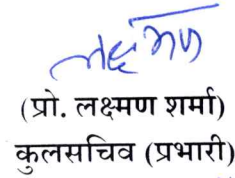 लक्ष्मण
(प्रो. लक्ष्मण शर्मा)
कुलसचिव (प्रभारी)